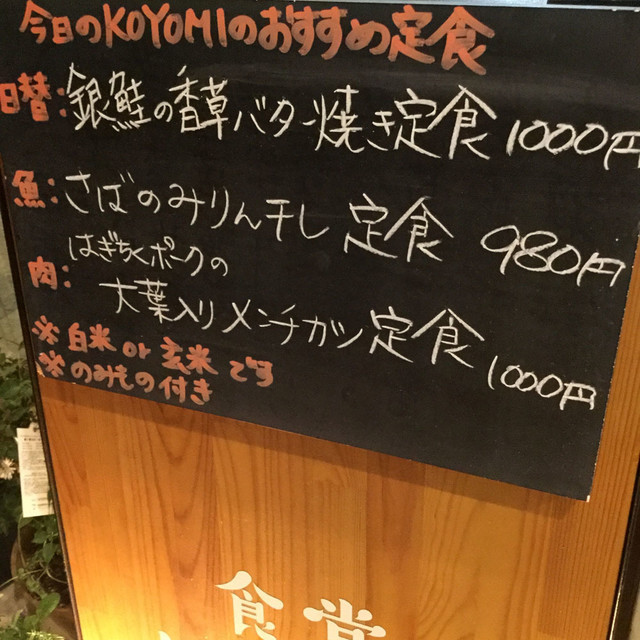 今日のKOYOMIのおすすめ定食
日替:銀鮭の香草バター焼き定食 1000円
魚:さばのみりん干し 定食 980円
肉:はぎちくポークの
大葉入りメンチカツ定食 1000円
※白米 or 玄米です
※のみもの付き
食堂